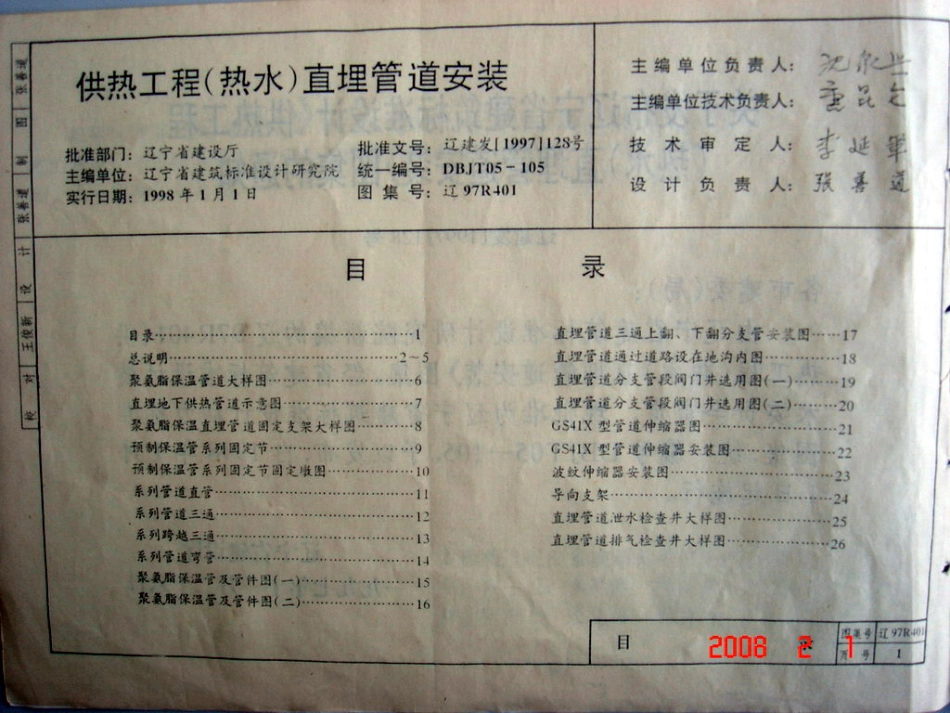 供热工程(热水)直埋管道安装
批准部门：辽宁省建设厅
主编单位：辽宁省建筑标准设计研究院
实行日期：1998年1月1日
批准文号：辽建发[1997]128号
统一编号：DBJT05-105
图集号：辽97R401
主编单位负责人：
主编单位技术负责人：
技术审定人：李延军
设计负责人：张善道
目录
目录……1
总说明……2-5
聚氨脂保温管道大样图……6
直埋地下供热管道示意图……7
聚氨脂保温直埋管道固定支架大样图……8
预制保温管系列固定节……9
预制保温管系列固定节固定墩图……10
系列管道直管……11
系列管道三通……12
系列跨越三通……13
系列管道弯管……14
聚氨脂保温管及管件图(一)……15
聚氨脂保温管及管件图(二)……16
直埋管道三通上翻、下翻分支管安装图……17
直埋管道通过道路设在地沟内图……18
直埋管道分支管段阀门井选用图(一)……19
直埋管道分支管段阀门井选用图(二)……20
GS41X型管道伸缩器图……21
GS41X型管道伸缩器安装图……22
波纹伸缩器安装图……23
导向支架……24
直埋管道泄水检查井大样图……25
直埋管道排气检查井大样图……26
制图 张善道
设计 张善道
校对 王俊新
目录
图集号 辽97R401
页号 1
2008 2 1